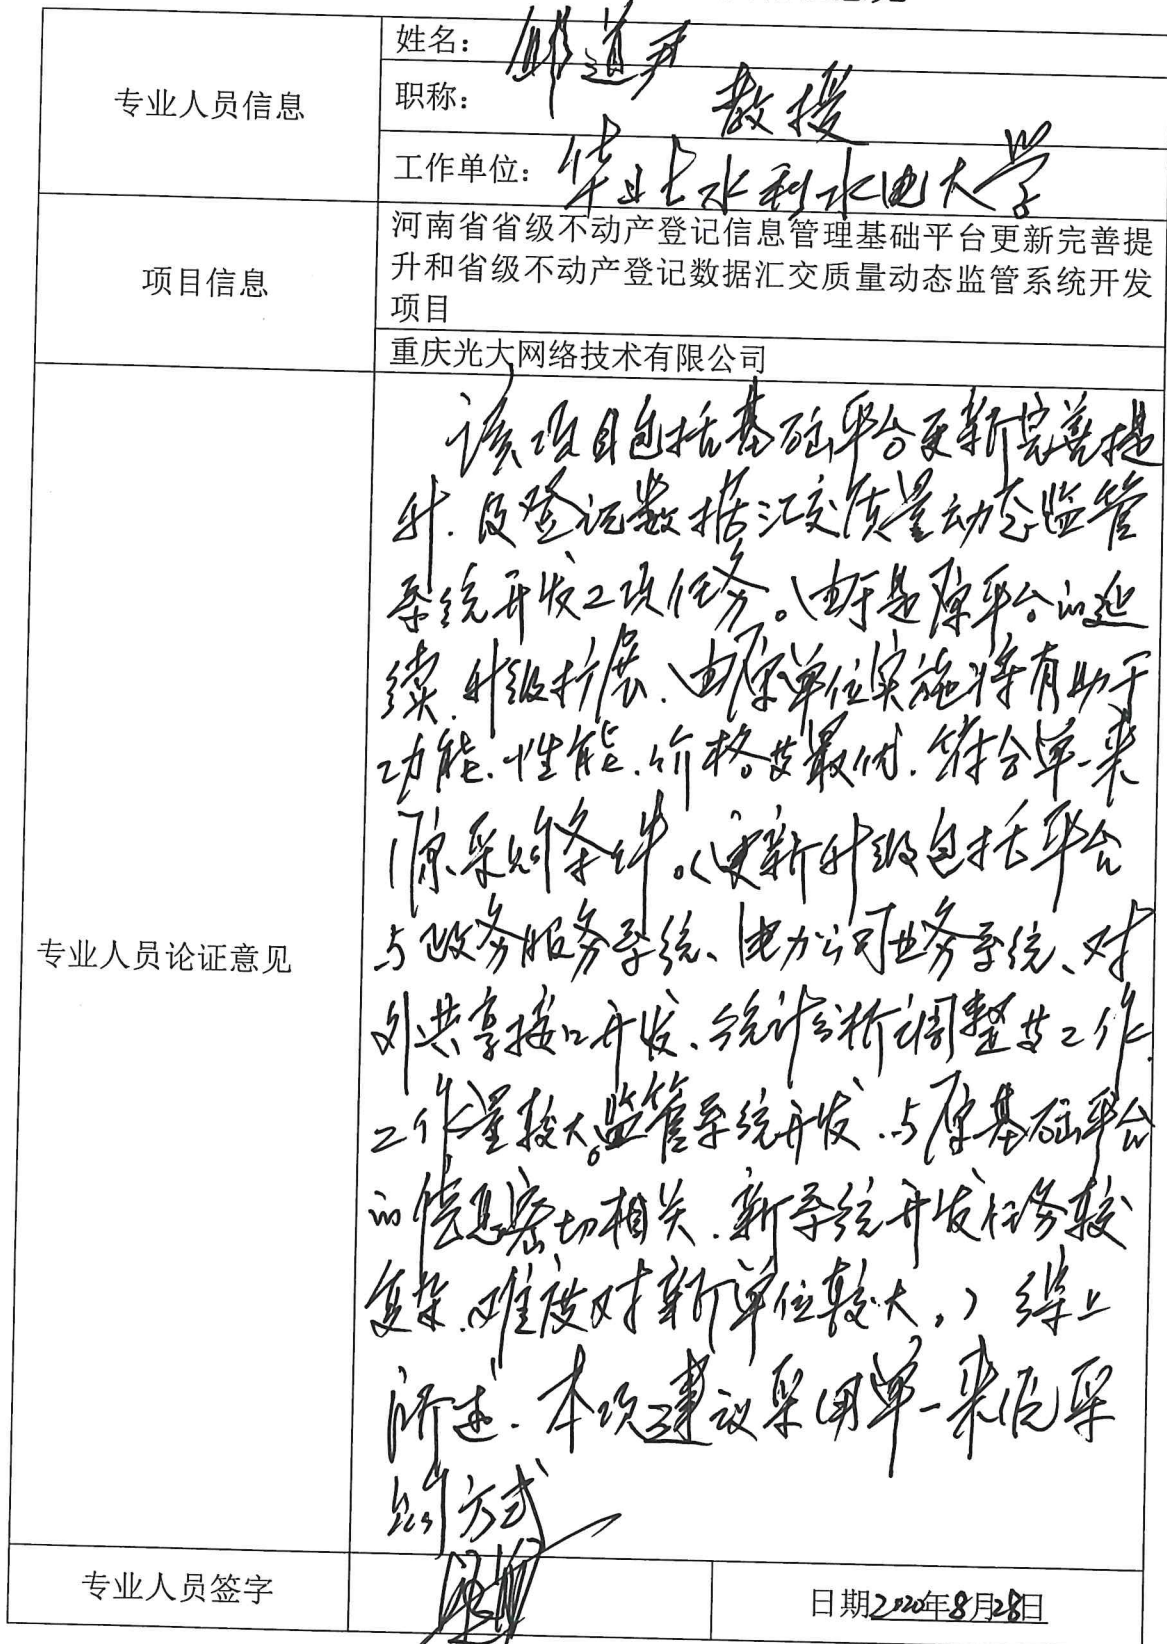 专业人员信息
姓名：邱道尹
职称：教授
工作单位：华北水利水电大学
项目信息
河南省省级不动产登记信息管理基础平台更新完善提
升和省级不动产登记数据汇交质量动态监管系统开发
项目
重庆光大网络技术有限公司
专业人员论证意见
该项目包括基础平台更新完善提
升、及登记数据汇交质量动态监管
系统开发2项任务。（由于是原平台的延
续、升级扩展、由原单位实施将有助于
功能、性能、价格等最优，符合单一来
源采购条件。（更新升级包括平台
与政务服务系统、电力公司业务系统、对
外共享接口开发、统计分析调整等工作，
工作量较大。监管系统开发，与原基础平台
的信息密切相关，新系统开发任务较
复杂，难度对新单位较大。）综上
所述，本项建议采用单一来源采
购方式
专业人员签字
日期2020年8月28日